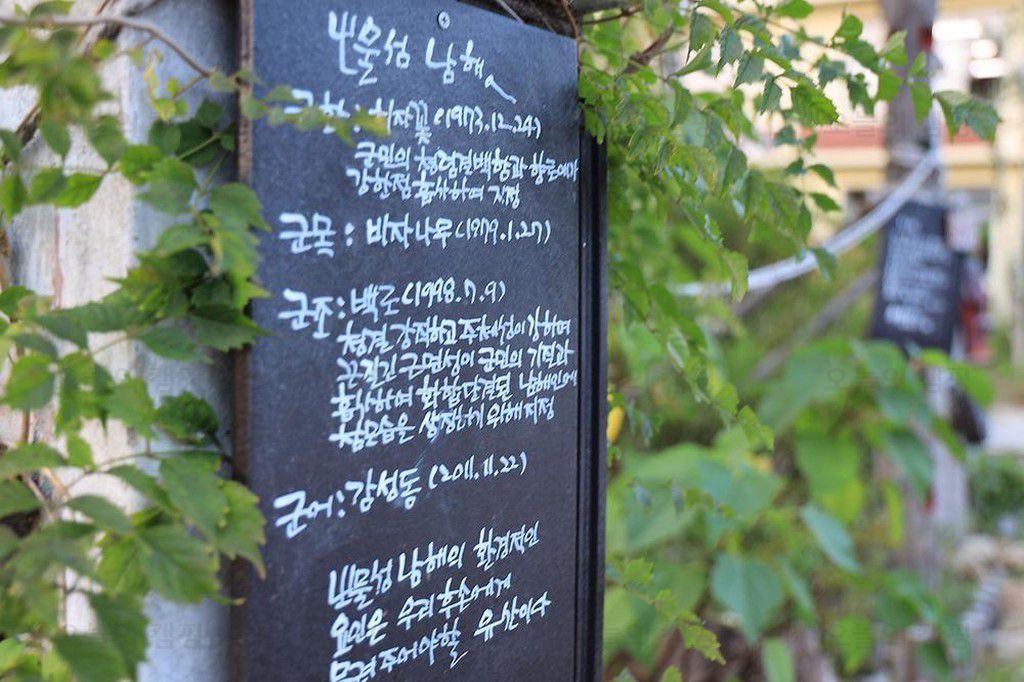 보물섬 남해
군화 : 치자꽃 (1973.12.24)
군민의 청렴결백함과 향토애가
강한점 흡사하며 지정
군목 : 비자나무 (1979.1.27)
군조 : 백로 (1998.7.9)
청결 강직하고 주체성이 강하며
끈질긴 근면성이 군민의 기질과
흡사하며 화합단결된 남해인에
참모습은 상징하기 위해 지정
군어 : 감성돔 (2011.11.22)
보물섬 남해의 환경적인
요인은 우리 후손에게
물려주어야할 유산이다